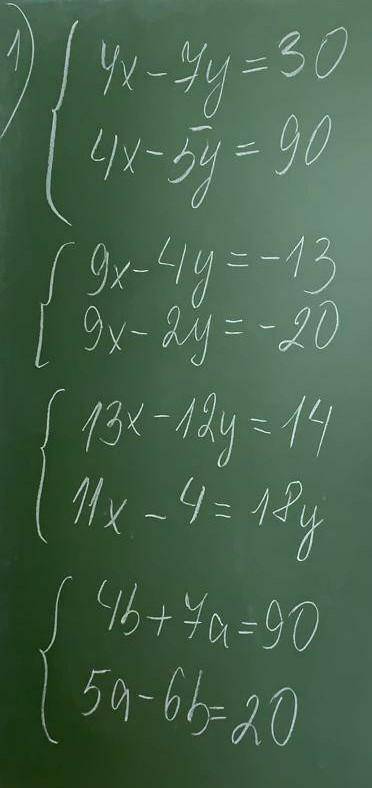 1) 4x - 7y = 30
4x - 5y = 90
9x - 4y = -13
9x - 2y = -20
13x - 12y = 14
11x - 4 = 18y
4b + 7a = 90
5a - 6b = 20